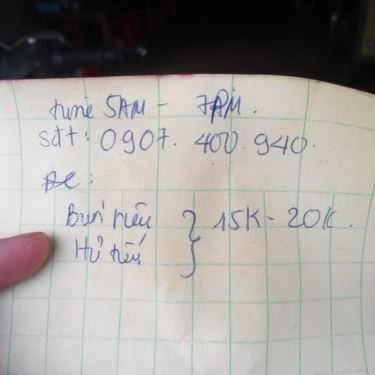 time 5AM - 7AM.
sđt: 0907. 400 940.
Bún riêu } 15K - 20K.
Hủ tiếu